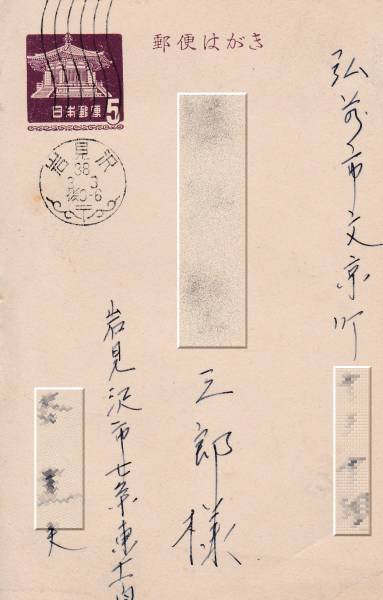 郵便はがき
日本郵便
5
岩見沢
38
後0-6
弘前市文京町
三郎様
岩見沢市七条東十一丙
夫